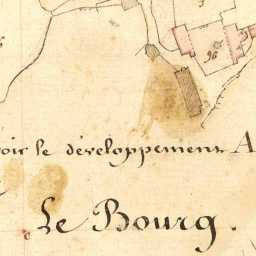 96
voir le développement A
Le Bourg.